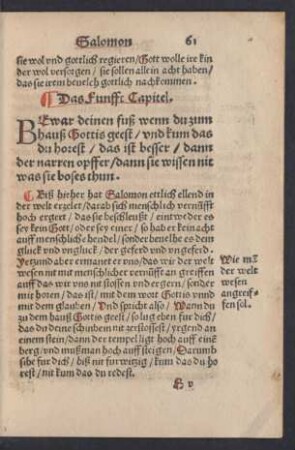 Salomon 61
sie wol vnd gottlich regieren/Gott wolle ire kin
der wol versorgen/sie sollen allein acht haben/
das sie irem beuelch gottlich nachkommen.
Das Funfft Capitel.
BEwar deinen fuß wenn du zum
hauß Gottis geest/vnd kum das
du horest/das ist besser/dann
der narren opffer/dann sie wissen nit
was sie boses thun.
Biß hieher hat Salomon ettlich ellend in
der welt erzelet/darab sich menschlich vernufft
hoch ergert/das sie beschleust/eintweder es
sey kein Gott/oder sey einer/so hab er kein acht
auff menschliche hendel/sonder beuelhe es dem
gluck vnd vngluck/der geferd vnd vngeferd.
Yetzund aber ermanet er vns/das wir der welt
wesen nit mit menschlicher vernufft angreiffen
auff das wir vns nit stossen vnd ergern/sonder
mit horen/das ist/mit dem wort Gottis vnnd
mit dem glauben/Vnd spricht also/Wann du
zu dem hauß Gottis geest/so lug eben fur dich/
das du deine schinbein nit zerstossest/yrgend an
einem stein/dann der tempel ligt hoch auff einē
berg/vnd muß man hoch auff steigen/Darumb
sihe fur dich/biß nit furwitzig/kum das du ho
rest/nit kum das du redest.
Wie mā
der welt
wesen
angreif-
fen sol.
H v